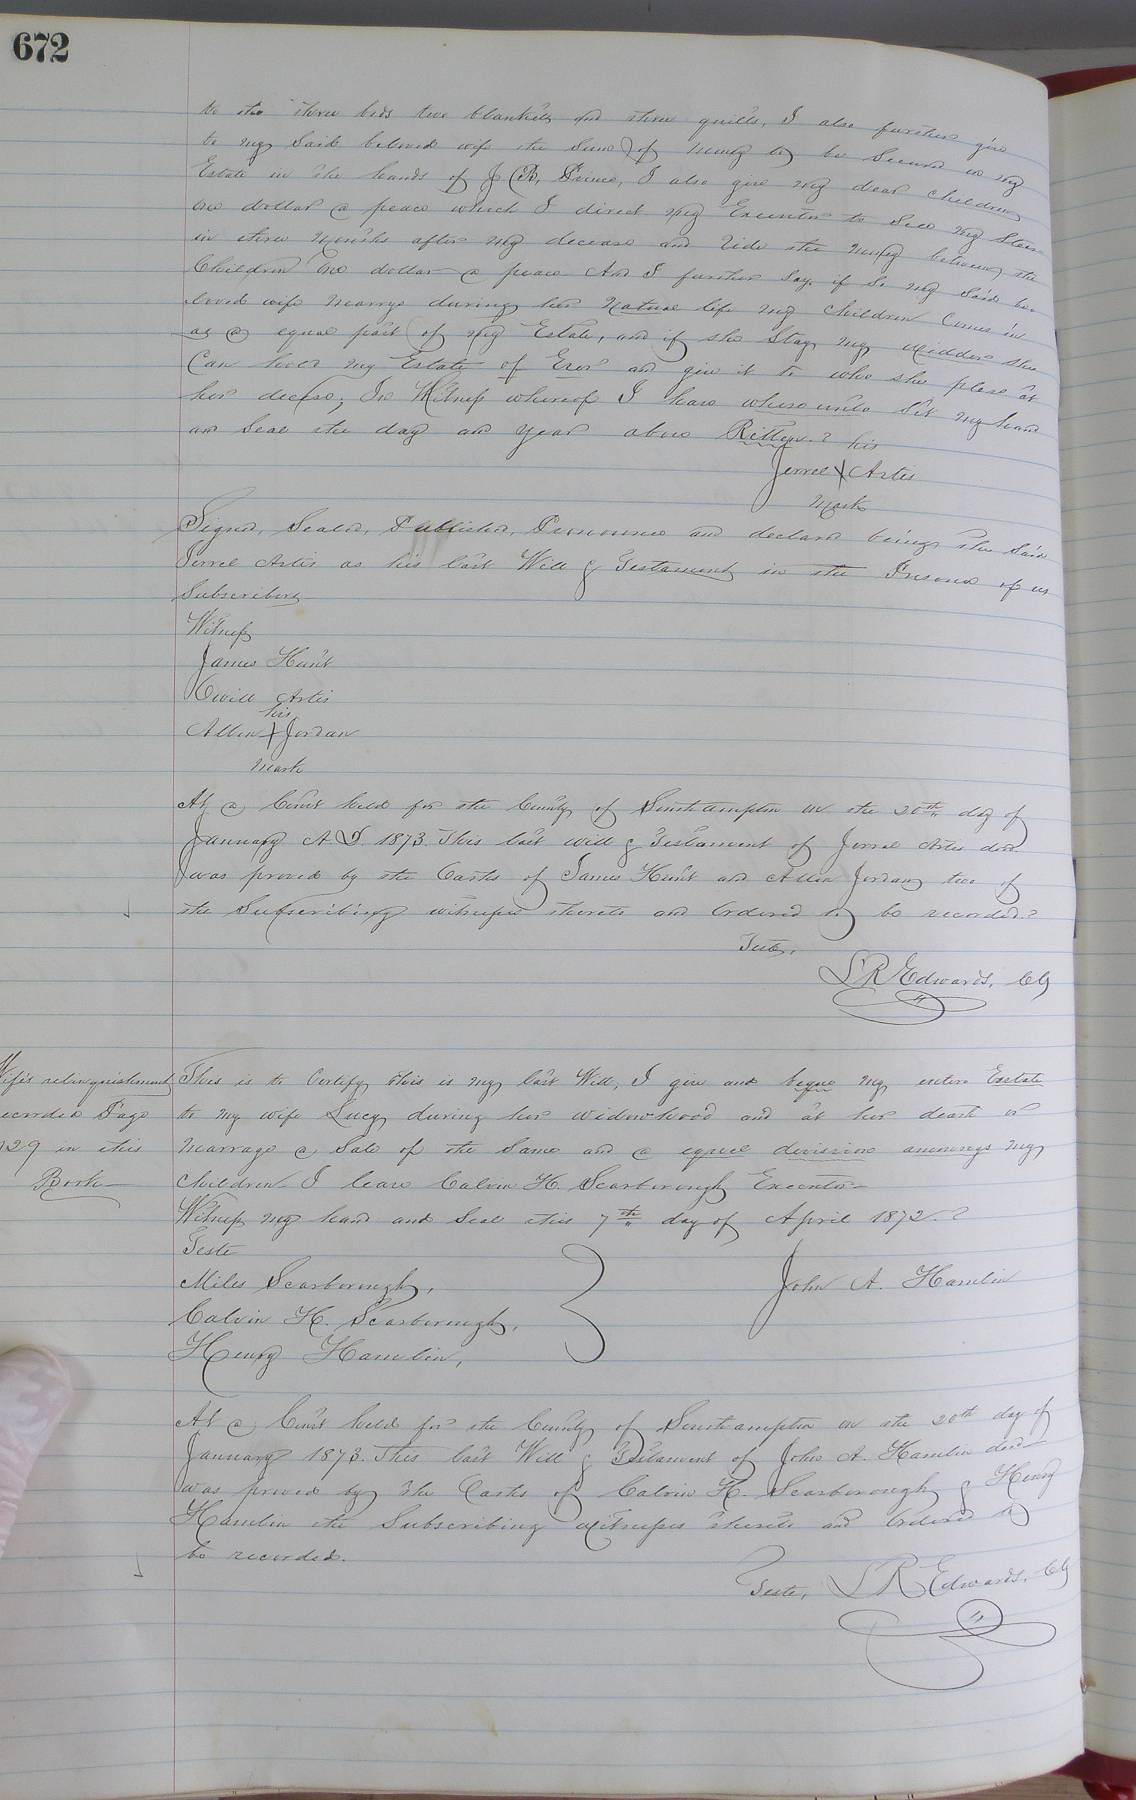 672
to the three beds two blankets and three quilts, I also further give
to my Said beloved wife the Sum of Muny to be Secured in my
Estate in the hands of J B, Prince, I also give my dear children
one dollar a peace which I direct my Executor to See my
in three Months after my decease and the Muny between the
Children one dollar a peace And I further Say. if So my Said be-
loved wife Marrys during her Natual life my children Comes in
as a equal part of my Estate, and if she Stay my widder she
Can hold my Estate of Ever and give it to who she please at
her decese; In Witness whereof I have whereunto Set my hand
and Seal the day and year above Ritten.
his
Jerrel X Artis
Mark
Signed, Sealed, Published, Pronounce and declard being the Said
Jerrel Artis as his last Will & Testament in the Presence of us
Subscribers
Witness
James Hunt
Artis
his
Allen X Jordan
Mark
At a Court held for the County of Southampton on the 20th day of
January A.D 1873 This last will & Testament of Jerrel Artis decd
was proved by the Oaths of James Hunt and Allen Jordan two of
the Subscribing witnesses thereto and Ordered to be recorded.
Teste,
L R Edwards, Clk
Wife's relinquishment
recorded Page
729 in this
Book
This is to Certify this is my last Will, I give and beque my entire Esstate
to my wife Lucy during her widowhood and at her death or
Marrage a Sale of the Same and a equel division amongs my
Children I leave Calvin H. Scarborough Executor
Witness my hand and Seal this 7th day of April 1872.
Teste
Miles Scarborough,
John A. Hamlin
Calvin H. Scarborough,
Henry Hamlin,
At a Court held for the County of Southampton on the 20th day of
January 1873. This last Will & Testament of John A. Hamlin decd
was proved by the Oaths of Calvin H. Scarborough & Henry
Hamlin the Subscribing witnesses thereto and Ordered to
be recorded.
Teste, L R Edwards, Clk